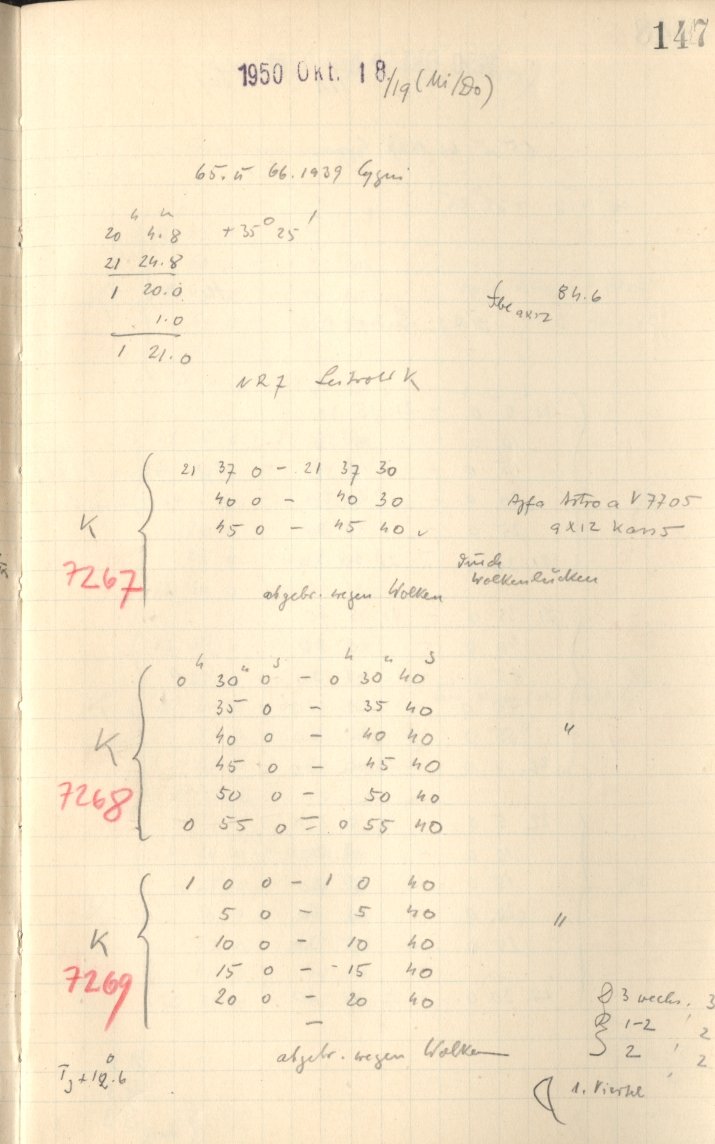 147
1950 Okt. 18./19 (Mi/Do)
65. u 66. 1939 Cygni
h m
20 4.8 +35° 25'
21 24.8
1 20.0
1.0
1 21.0
9x12 84.6
NR7 K
21 37 0 - 21 37 30
40 0 - 40 30
45 0 - 45 40
K
7267
Agfa Astro a V 7705
9x12
durch
Wolkenlücken
abgebr. wegen Wolken
h m s h m s
0 30 0 - 0 30 40
35 0 - 35 40
40 0 - 40 40 "
45 0 - 45 40
50 0 - 50 40
0 55 0 = 0 55 40
K
7268
1 0 0 - 1 0 40
5 0 - 5 40 "
10 0 - 10 40
15 0 - 15 40
20 0 - 20 40
-
K
7269
3 wechs. 3
1-2 ' 2
2 ' 2
abgebr. wegen Wolken
1. Viertel '